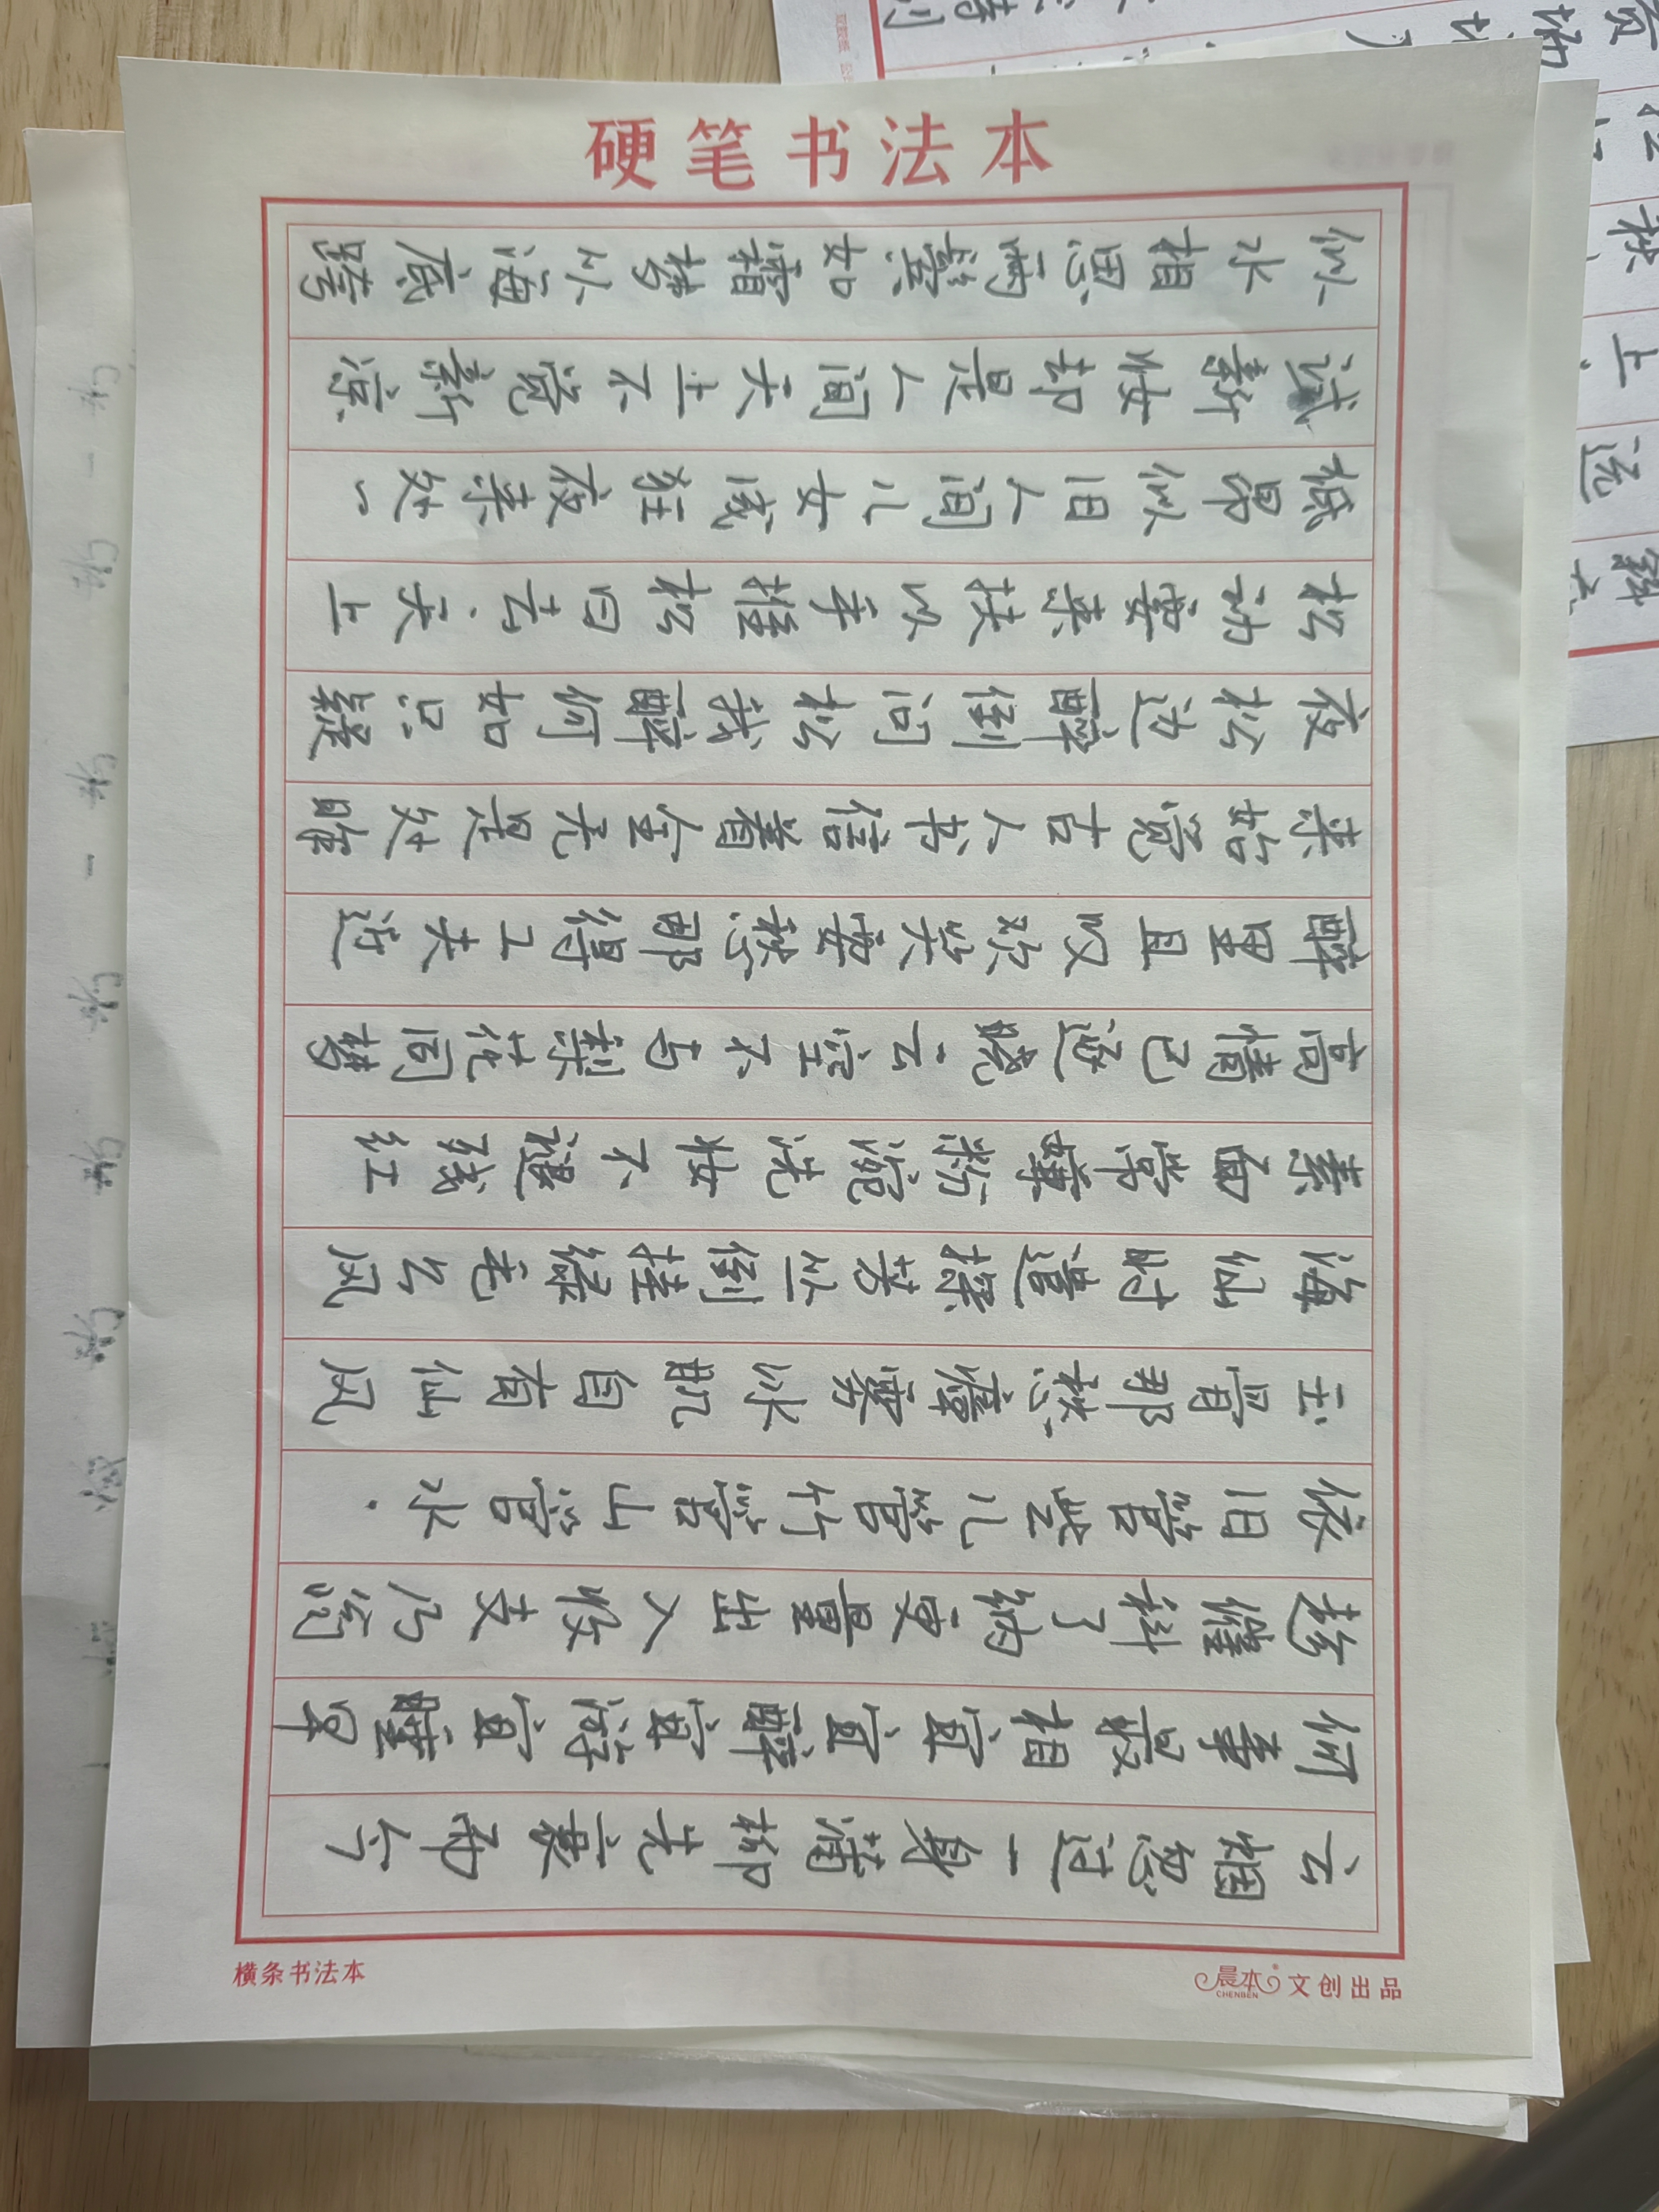 云烟忽过一身蒲柳先衰而今
何事最相宜宜醉宜游宜睡早
趁催科了纳更量出入收支乃翁
依旧管些儿管竹管山管水.
玉骨那愁瘴雾冰肌自有仙风
海仙时遣探芳丛倒挂绿毛幺风
素面常嫌粉涴洗妆不褪残红
高情已逐晓云空不与梨花同梦
醉里且叹欢笑要愁那得工夫近
来始觉古人书信着全无是处昨
夜松边醉倒问松我醉何如只疑
松动要来扶以手推松曰去、天上
低昂似旧人间儿女成狂夜来处一
试新妆却是人间天上不觉新凉
似水相思两鬓如霜梦从海底跨
硬笔书法本
晨本文创出品
CHENBEN
横条书法本